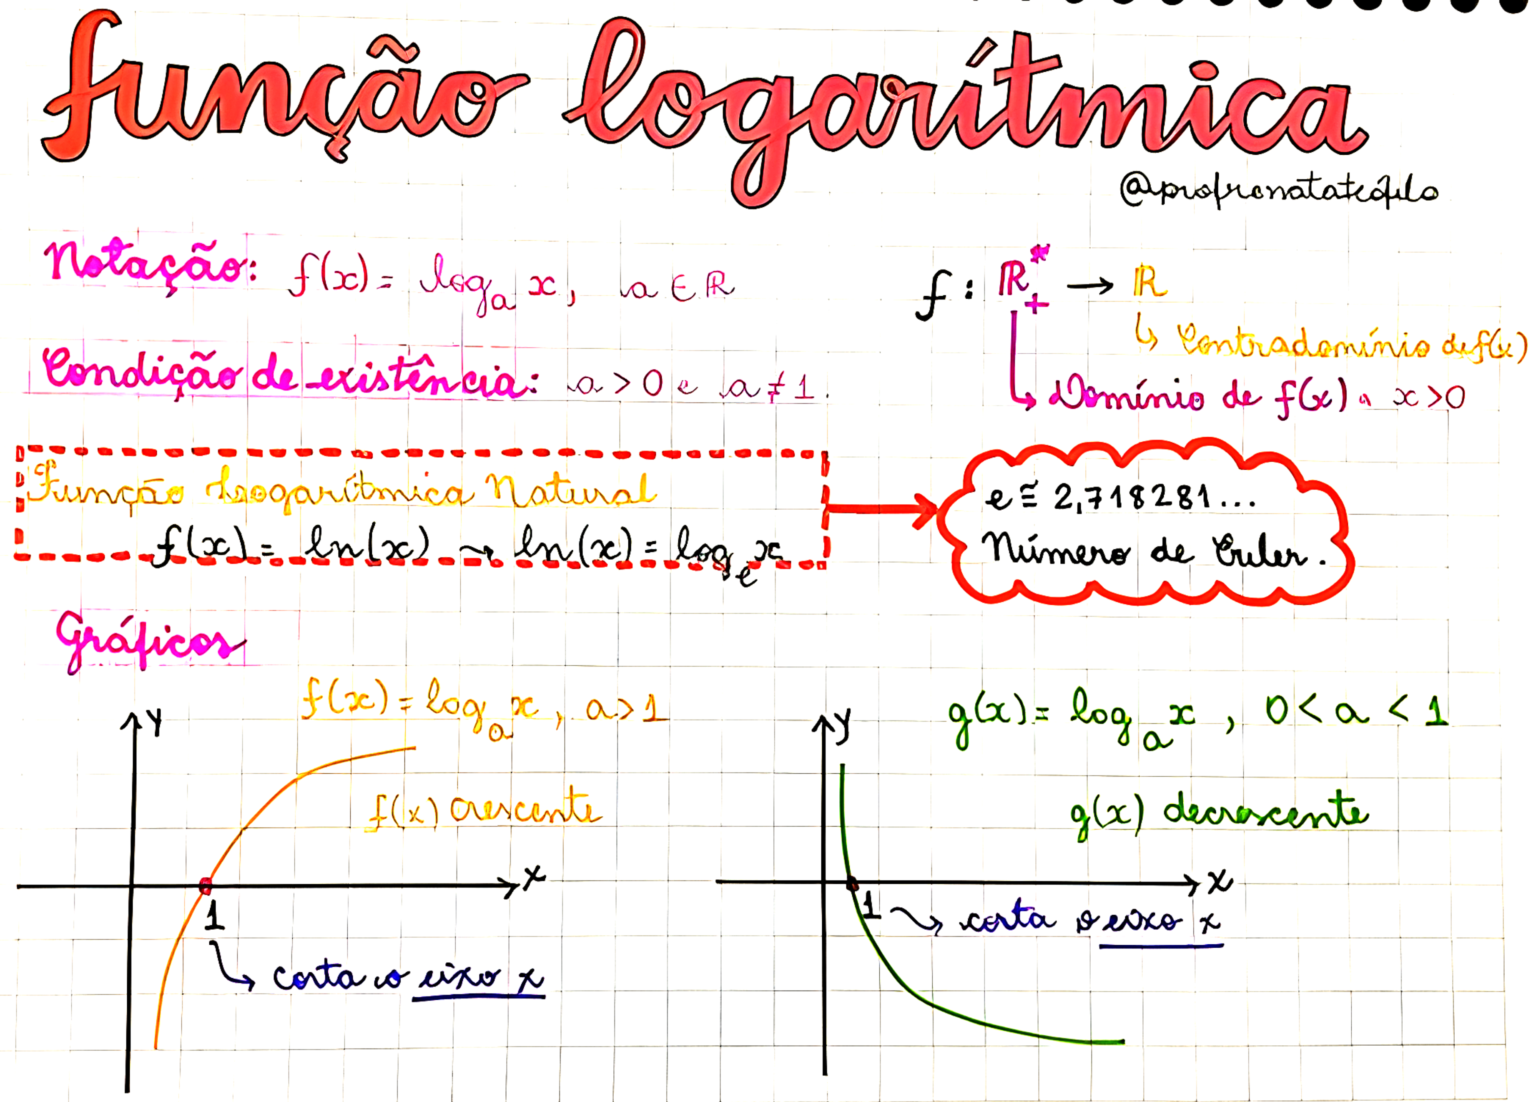 função logarítmica
@profrenatateófilo
Notação: f(x) = logₐ x, a ∈ ℝ
f: ℝ*₊ → ℝ
↳ Contradomínio de f(x)
↳ Domínio de f(x), x > 0
Condição de existência: a > 0 e a ≠ 1.
Função Logarítmica Natural
f(x) = ln(x) → ln(x) = logₑ x
e ≅ 2,718281...
Número de Euler.
Gráficos
f(x) = logₐ x, a > 1
y
f(x) crescente
x
1
↳ corta o eixo x
g(x) = logₐ x, 0 < a < 1
y
g(x) decrescente
x
1 → corta o eixo x